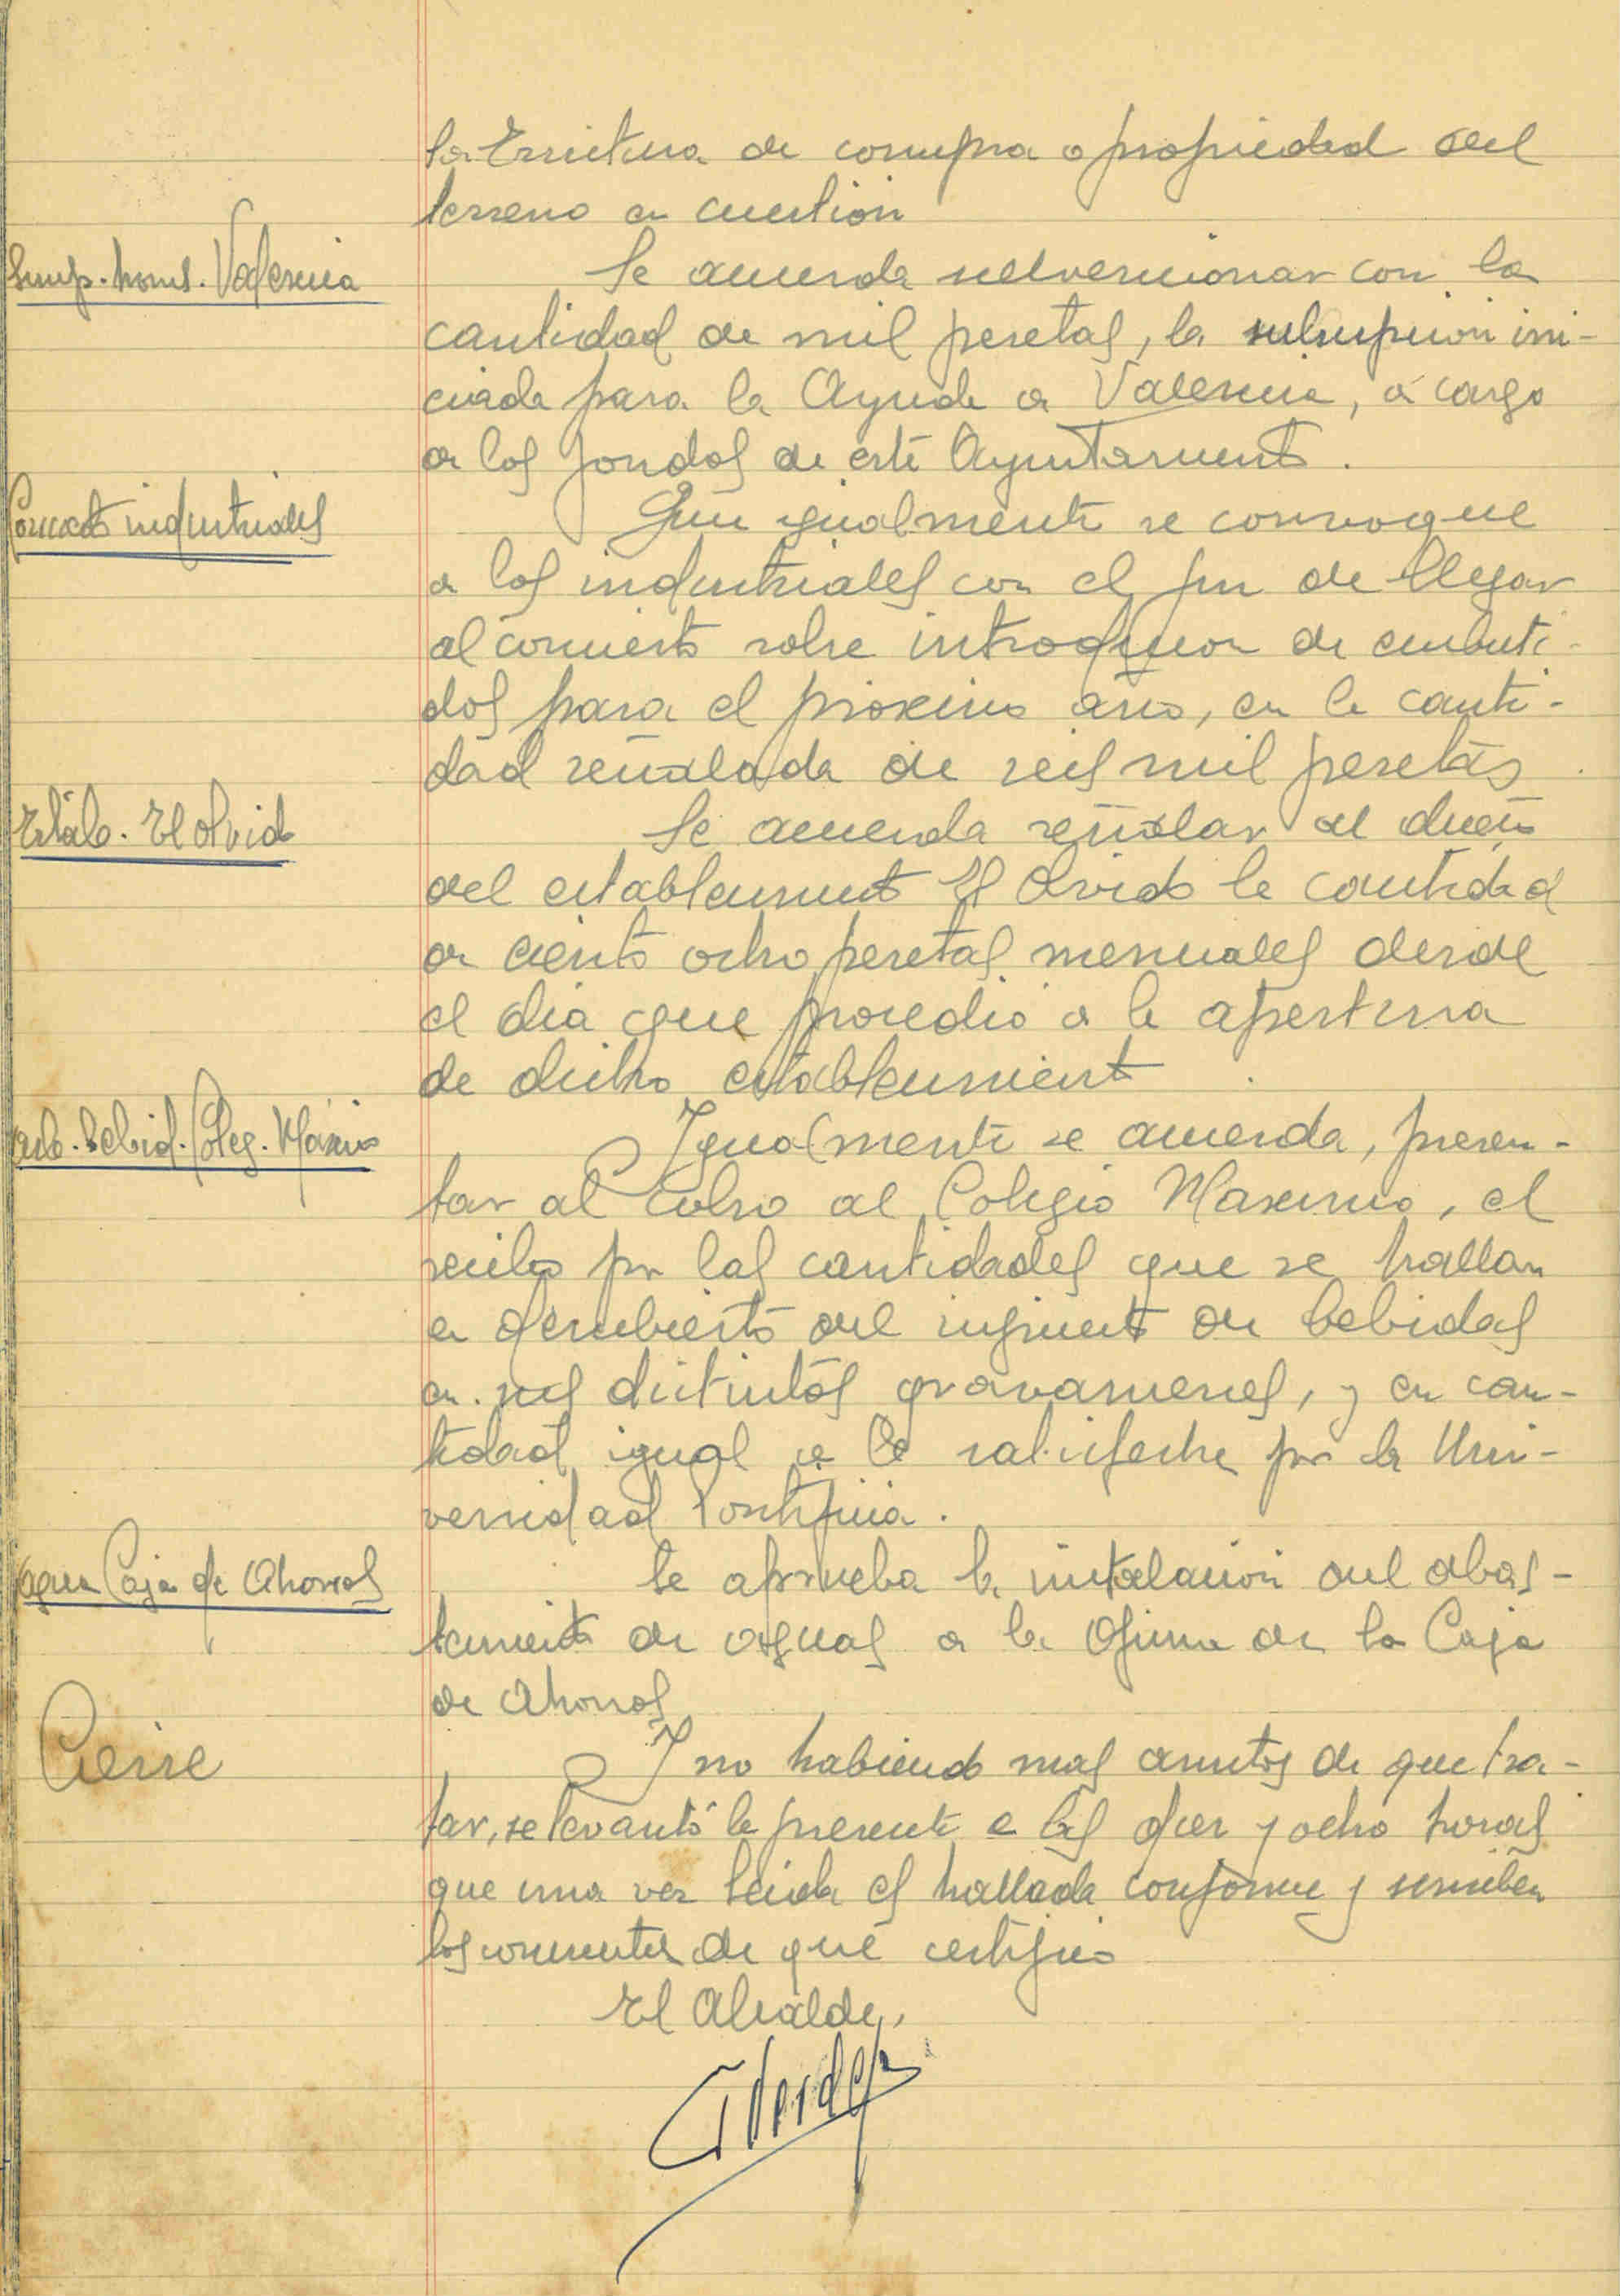 la Escritura de compra o propiedad del
terreno en cuestion
Susp. nons. Valencia
Se acuerda subvencionar con la
cantidad de mil pesetas, la subscripcion ini-
ciada para la Ayuda a Valencia, a cargo
a los fondos de este Ayuntamiento.
Conciert industriales
Que igualmente se convoque
a los industriales con el fin de llegar
al concierto sobre introduccion de embuti-
dos para el proximo año, en la canti-
dad señalada de seis mil pesetas
Estab. El Olvido
Se acuerda señalar al dueño
del establecimiento El Olvido la cantidad
de ciento ocho pesetas mensuales desde
el dia que procedio a la apertura
de dicho establecimiento
Arb. Bebid. Coleg. Maximo
Igualmente se acuerda, presen-
tar al Cobro al Colegio Maximo, el
recibo por las cantidades que se hallan
en descubierto del impuesto de bebidas
en sus distintos gravamenes, y en can-
tidad igual a la satisfecha por la Uni-
versidad Pontificia.
agua Caja de Ahorros
Se aprueba la instalacion del abas-
tecimiento de aguas a la Oficina de la Caja
de Ahorros
Cierre
Y no habiendo mas asuntos de que tra-
tar, se levantó la presente a las diez y ocho horas
que una vez leida es hallada conforme y suscriben
los concurrentes de que certifico
El Alcalde,